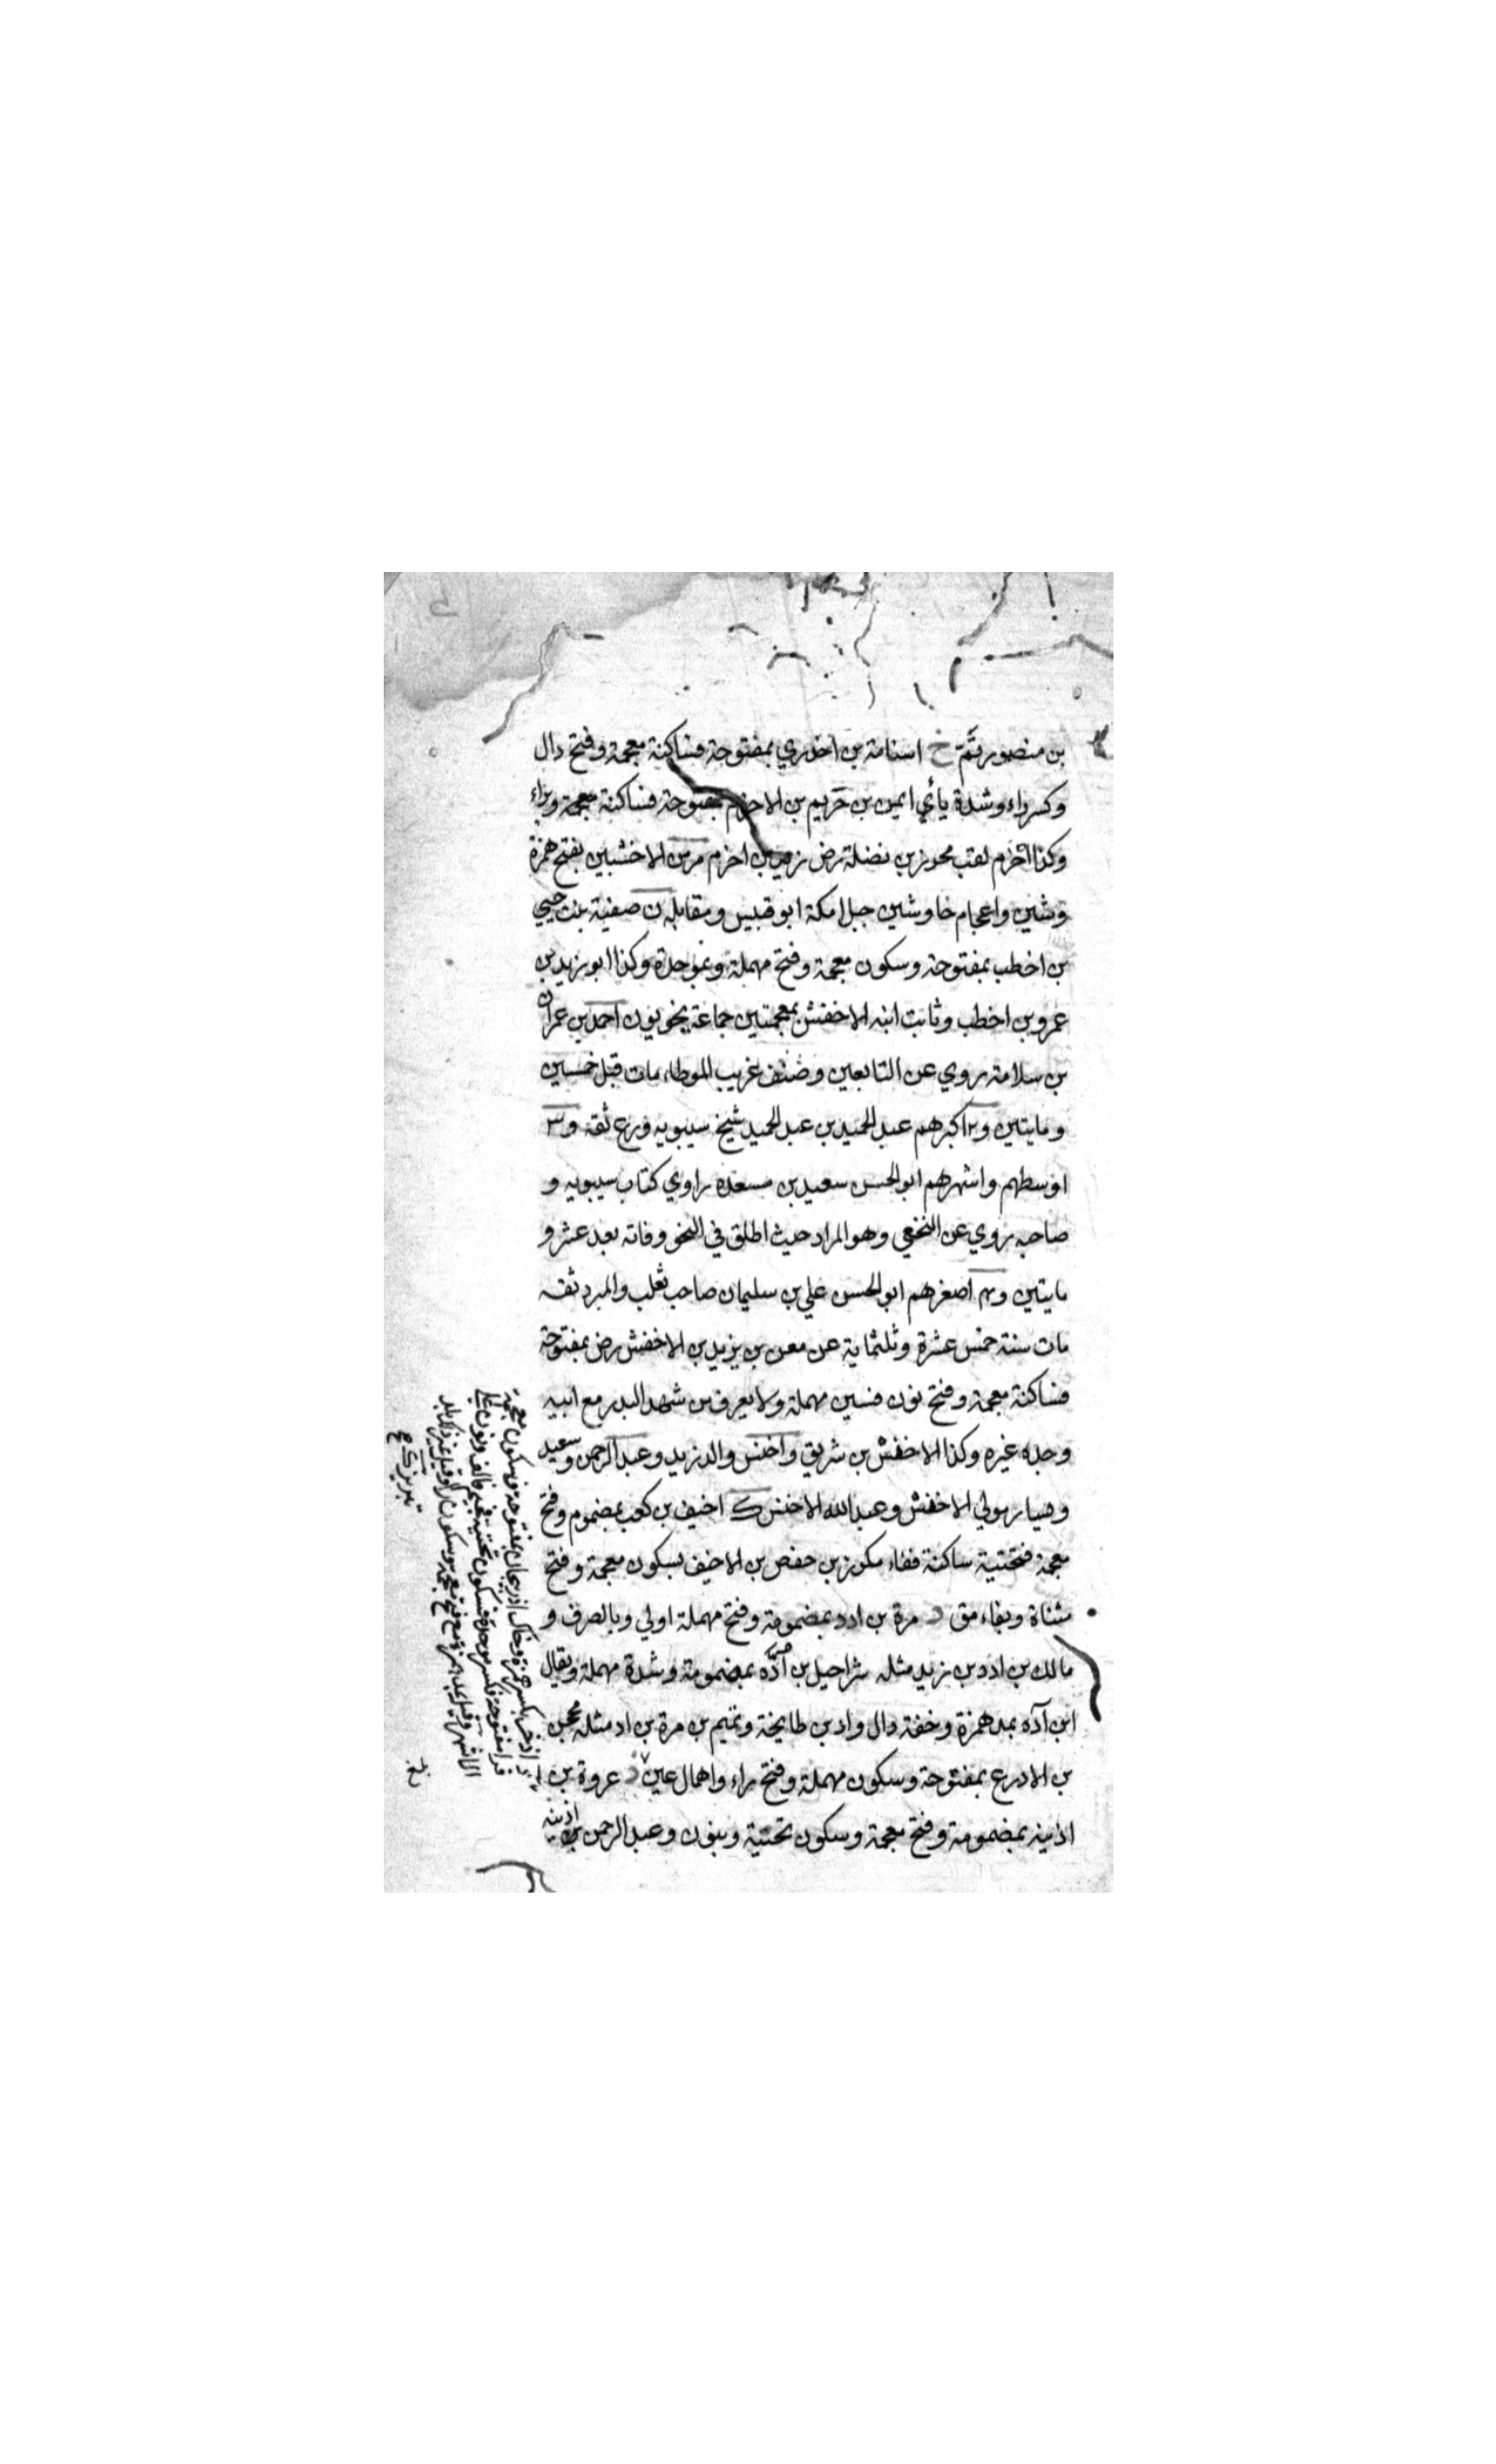 بن منصور ثم خ اسامة بن اخدري بمفتوحة فساكنة معجمة وفتح دال
وكسر راء وشدة يائي ايمن بن خريم بن الاخرم بمفتوحة فساكنة معجمة وبراء
وكذا اخرم لقب محرز بن نضلة رض زيد بن اخزم مر من الاخشبين بفتح همزة
وشين واعجام خا وشين جبلا مكة ابو قبيس ومقابله ن صفية بنت حيي
بن اخطب بمفتوحة وسكون معجمة وفتح مهملة وبموحدة وكذا ابو زيد بن
عمرو بن اخطب وثابت ابنه الاخفش بمعجمتين جماعة نحويون احمد بن عمران
بن سلامة روي عن التابعين وصنف غريب الموطاء مات قبل خمسين
ومايتين و٢ اكبرهم عبد الحميد بن عبد الحميد شيخ سيبويه ورع ثقة و٣
اوسطهم واشهرهم ابو الحسن سعيد بن مسعدة راوي كتاب سيبويه و
صاحبه روي عن النخعي وهو المراد حيث اطلق في النحو وفاته بعد عشر و
مايتين و٤ اصغرهم ابو الحسن علي بن سليمان صاحب ثعلب والمبرد ثقة
مات سنة خمس عشرة وثلثماية عن معن بن يزيد بن الاخفش رض بمفتوحة
فساكنة معجمة وفتح نون فسين مهملة ولا يعرف من شهد البدر مع ابيه
وجده غيره وكذا الاخفش بن شريق واخنس والد زيد وعبد الرحمن وسعيد
وسيار مولي الاخفش وعبد الله الاخنس ك اخيف بن كعب بمضموم وفتح
معجمة فتحتية ساكنة ففاء مكرز بن حفص بن الاخيف بسكون معجمة وفتح
مثناة وبفاء مق د مرة بن ادد بمضمومة وفتح مهملة اولي وبالصرف و
مالك بن ادد بن زيد مثله شراحيل بن اده بمضمومة وشدة مهملة ويقال
ابن آده بمد همزة وخفة دال واد بن طابخة وتميم بن مرة بن اد مثله محجن
بن الادرع بمفتوحة وسكون مهملة وفتح راء واهمال عين ذ عروة بن
اذينة بمضمومة وفتح معجمة وسكون تحتية وبنون وعبد الرحمن بن اذينة
اذخر بكسر همزة وخاك اذربيجان بمفتوحة فسكون معجمة
فرا مفتوحة فكسر موحدة فسكون تحتية فجيم فالف ونون علي
الاشهر وقيل بمد همزة مع فتح معجمة وسكون را وقيل غير ذلك بلد
تبريز ك